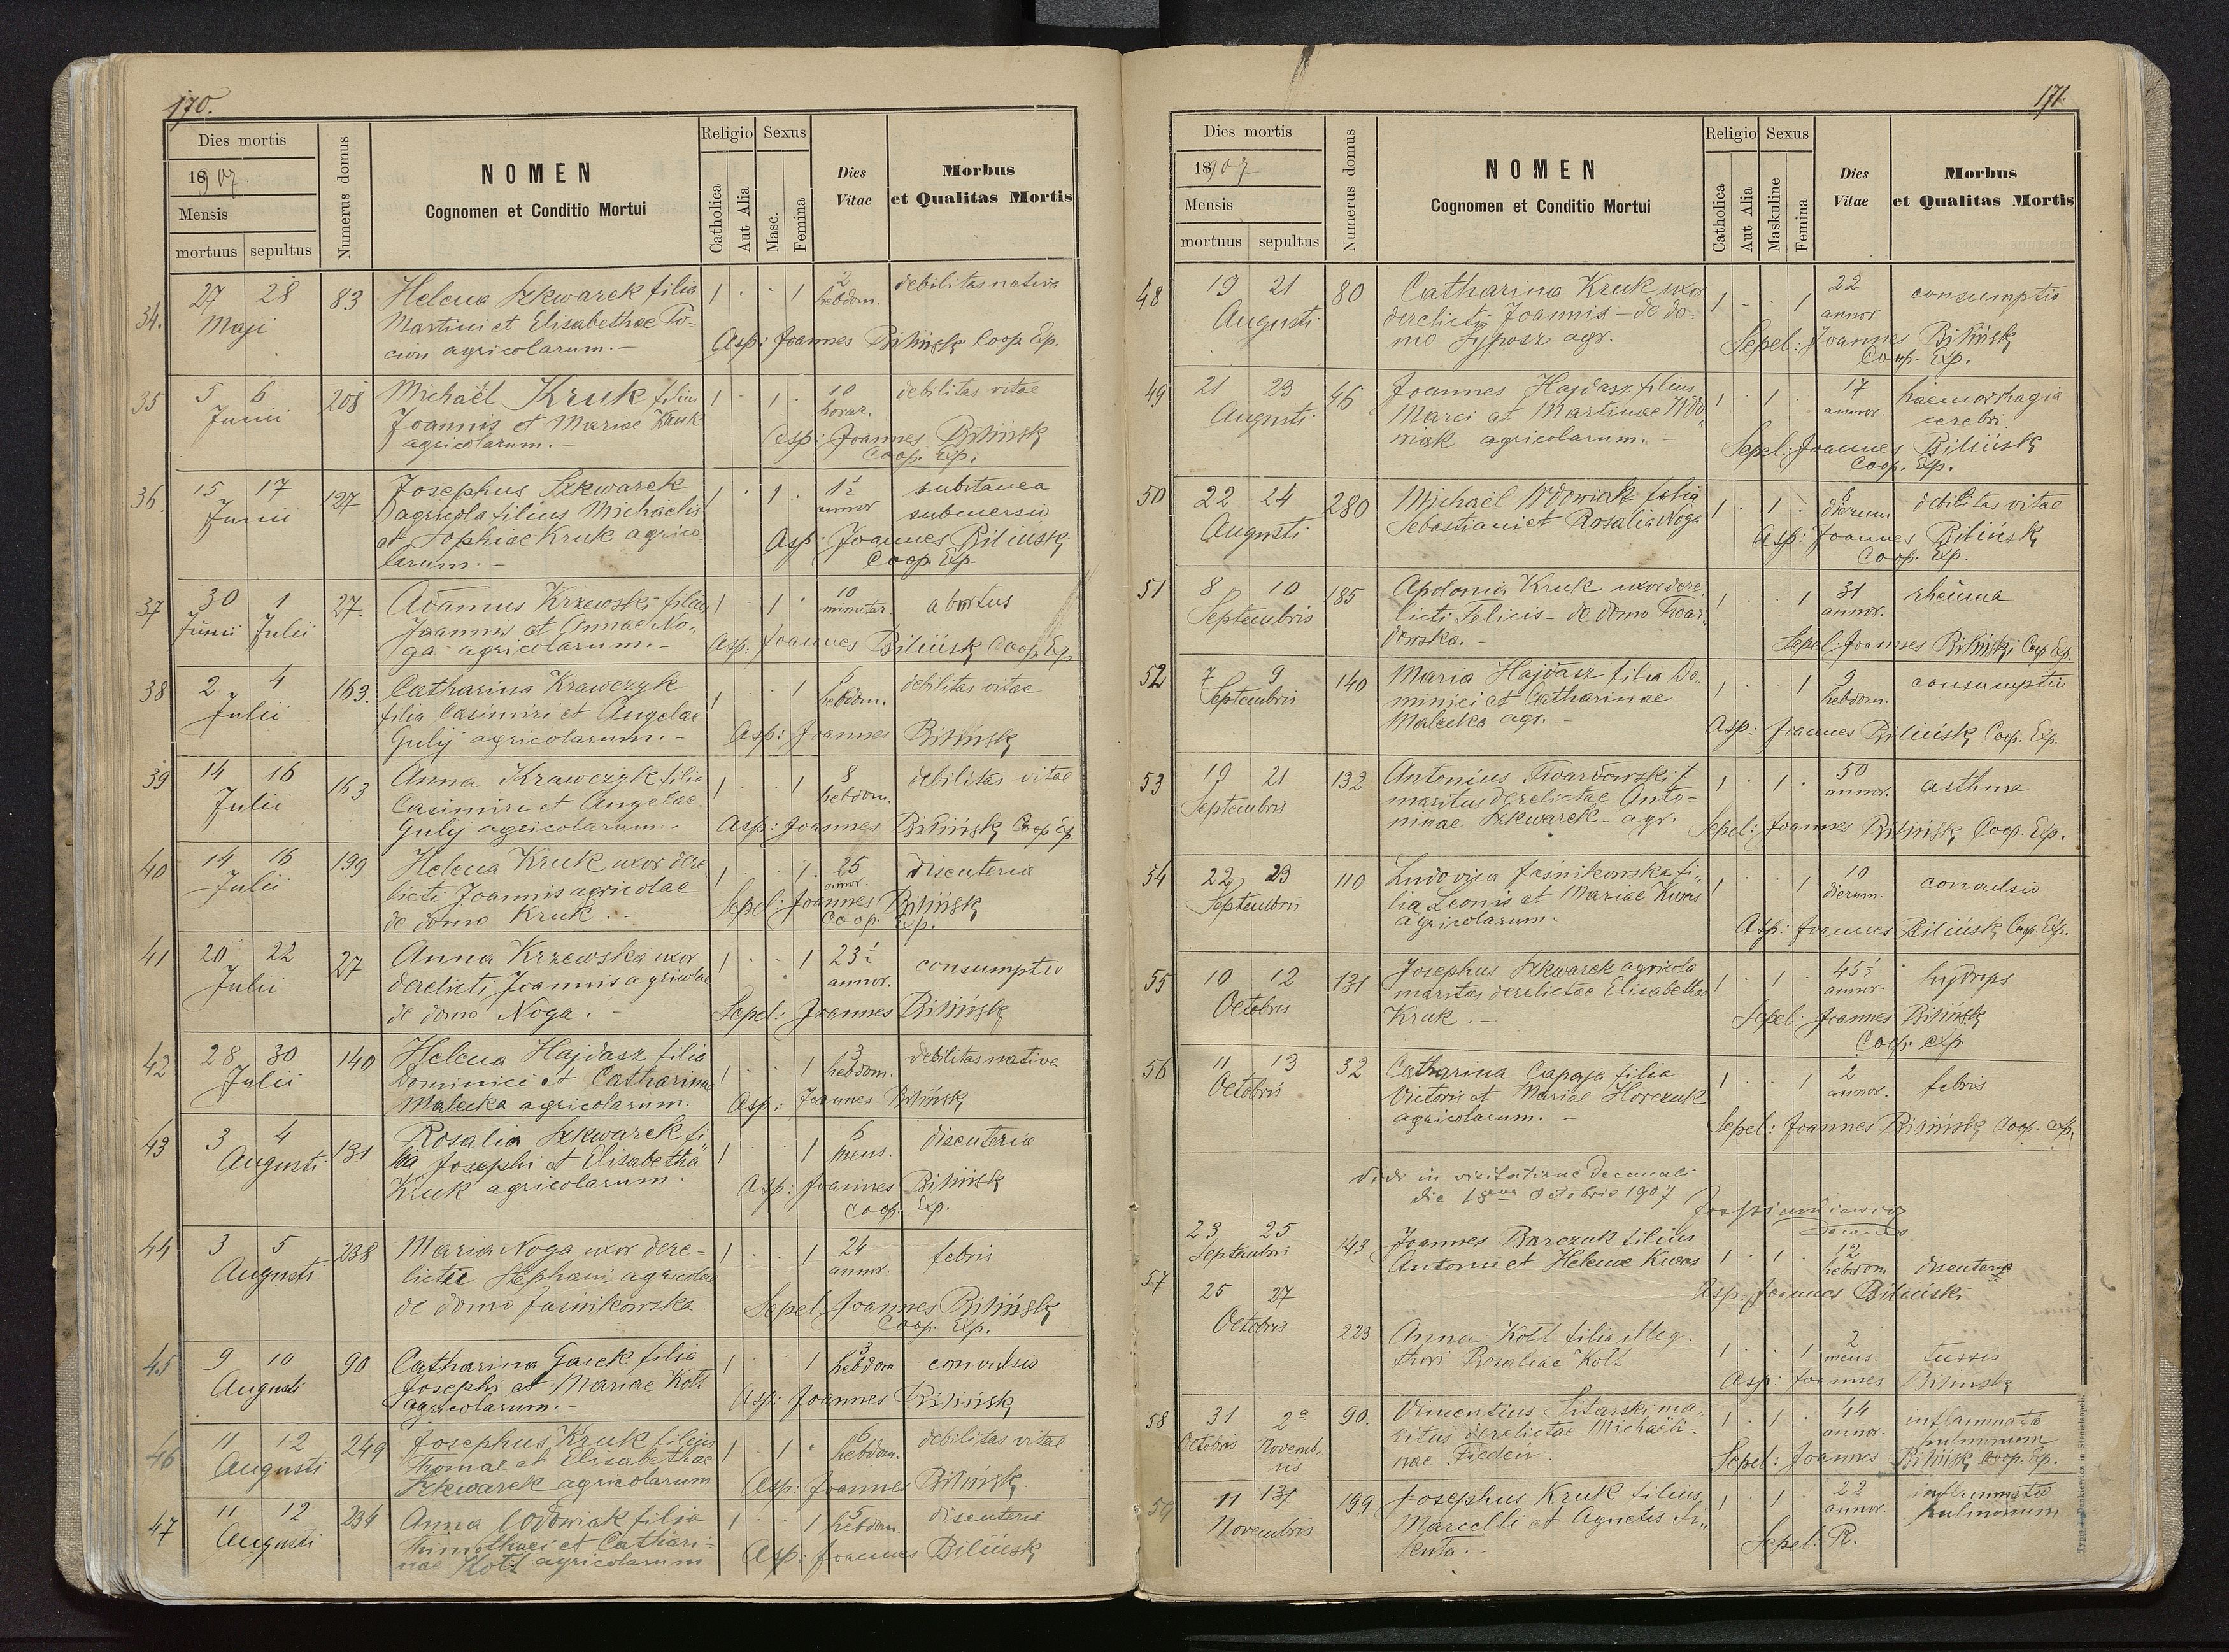 170.
Dies mortis
1907.
Mensis
mortuus sepultus
Numerus domus
NOMEN
Cognomen et Conditio Mortui
Religio
Catholica
Aut Alia
Sexus
Masc.
Femina
Dies
Vitae
Morbus
et Qualitas Mortis
34. 27 28 83 Helena Szkwarek filia 1 · · 1 2 debilitas nativa
Maji Martini et Elisabethae Po= hebdom.
cion agricolarum.- Asp: Joannes Biliński Coop. Exp.
35 5 6 208 Michaël Kruk filius 1 · 1 · 10 debilitas vitae
Junii Joannis et Mariae Kruk horar.
agricolarum.- Asp: Joannes Biliński
Coop. Exp.
36. 15 17 127 Josephus Szkwarek 1 · 1 · 1½ subitanea
Junii agricola filius Michaelis annor submersio
et Sophiae Kruk agrico Asp: Joannes Biliński
larum.- Coop. Exp.
37 30 1 27. Adamus Krzewski filius 1 · 1 · 10 abortus
Junii Julii Joannis et Annae No- minutar
ga agricolarum.- Asp: Joannes Biliński Coop. Exp.
38 2 4 163. Catharina Krawczyk 1 · · 1 6 debilitas vitae
Julii filia Casimiri et Angelae hebdom.
Gulij agricolarum.- Asp: Joannes Biliński
39 14 16 163 Anna Krawczyk filia 1 · · 1 8 debilitas vitae
Julii Casimiri et Angelae hebdom.
Gulij agricolarum.- Asp: Joannes Biliński Coop. Exp.
40 14 16 199 Helena Kruk uxor dere 1 · · 1 · 25 disenteria
Julii licti Joannis agricolae annor.
de domo Kruk.- Sepel: Joannes Biliński
Coop. Exp.
41 20 22 27 Anna Krzewska uxor 1 · · 1 23½ consumptio
Julii derelicti Joannis agricolae annor.
de domo Noga.- Sepel: Joannes Biliński
42 28 30 140 Helena Hajdasz filia 1 · · 1 3 debilitas nativa
Julii Dominici et Catharinae hebdom.
Malecka agricolarum. Asp: Joannes Biliński
43 3 4 131 Rosalia Szkwarek fi 1 · · 1 6 disenteria
Augusti lia Josephi et Elisabetha mens.
Kruk agricolarum. Asp: Joannes Biliński
Coop. Exp.
44 3 5 238 Maria Noga uxor dere= 1 · · 1 24 febris
Augusti lictae Stephani agricolae annor.
de domo Jasinikowska. Sepel: Joannes Biliński
Coop. Exp.
45 9 10 90 Catharina Gaick filia 1 · · 1 3 convulsio
Augusti Josephi et Mariae Kott hebdom
agricolarum.- Asp: Joannes Biliński
46 11 12 249 Josephus Kruk filius 1 · 1 · 6 debilitas vitae
Augusti Thomae et Elisabethae hebdom.
Szkwarek agricolarum Asp: Joannes Biliński
47 11 12 234 Anna Wdowiak filia 1 · · 1 5 disenteria
Augusti Thimothaei et Cathari= hebdom.
nae Kott agricolarum Asp: Joannes Biliński
171.
Dies mortis
1907
Mensis
mortuus sepultus
Numerus domus
NOMEN
Cognomen et Conditio Mortui
Religio
Catholica
Aut Alia
Sexus
Maskuline
Femina
Dies
Vitae
Morbus
et Qualitas Mortis
48 19 21 80 Catharina Kruk uxor 1 · · 1 22 consumptio
Augusti derelicti Joannis - de do= annor
mo agr. Sepel: Joannes Biliński
Coop. Exp.
49 21 23 46 Joannes Hajdasz filius 1 · 1 · 17 haemorrhagia
Augusti Marci et Martinae Wdo annor. cerebri
wiak agricolarum.- Sepel: Joannes Biliński
Coop. Exp.
50 22 24 280 Michaël Wdowiak filia 1 · 1 · 8 debilitas vitae
Augusti Sebastiani et Rosalia Noga dierum
Asp: Joannes Biliński
Coop. Exp.
51 8 10 185 Apolonia Kruk uxor dere 1 · · 1 31 rheuma
Septembris licti Felicis - de domo Twar annor.
dowska.- Sepel: Joannes Biliński Coop. Exp.
52 7 9 140 Maria Hajdasz filia Do 1 · · 1 9 consumptio
Septembris minici et Catharinae hebdom.
Malecka agr.- Asp: Joannes Biliński Coop. Exp.
53 19 21 132 Antonius Twardowski 1 · 1 · 50 asthma
Septembris maritus derelictae Anto= annor.
ninae Szkwarek - agr. Sepel: Joannes Biliński Coop. Exp.
54 22 23 110 Ludovica Jasnikowska fi- 1 · · 1 10 convulsio
Septembris lia Leonis et Mariae Kwas dierum.
agricolarum. Asp: Joannes Biliński Coop. Exp.
55 10 12 131 Josephus Szkwarek agricola 1 · 1 · 45½ hydrops
Octobris maritus derelictae Elisabethae annor.
Kruk.- Sepel: Joannes Biliński
Coop. exp
56 11 13 32 Catharina Capaja filia 1 · · 1 2 febris
Octobris Victoris et Mariae Horczuk annor.
agricolarum.- Sepel: Joannes Biliński Coop. exp.
Vidi in visitatione Decanali
die 18 Octobris 1907
23 25 143 Joannes Barczuk filius 1 · 1 · 12 disenteria
Septembri Antonii et Helenae Kwas hebdom
57 Asp: Joannes Biliński
25 27
Octobris 223 Anna Kott filia illeg. 1 · · 1 2 tussis
thori Rosaliae Kott mens.
Asp: Joannes Biliński
58 31 2a 90. Vincentius Sitarski ma- 1 · 1 · 44 inflammatio
Octobris Novemb- ritus derelictae Michaëli- annor. pulmonum
ris nae Fieden. Sepel: Joannes Biliński Coop. Exp.
59 11 13 199 Josephus Kruk filius 1 · 1 · 22 inflammatio
Novembris Marcelli et Agnetis Si- annor. pulmonum
kuta.- Sepel: R.